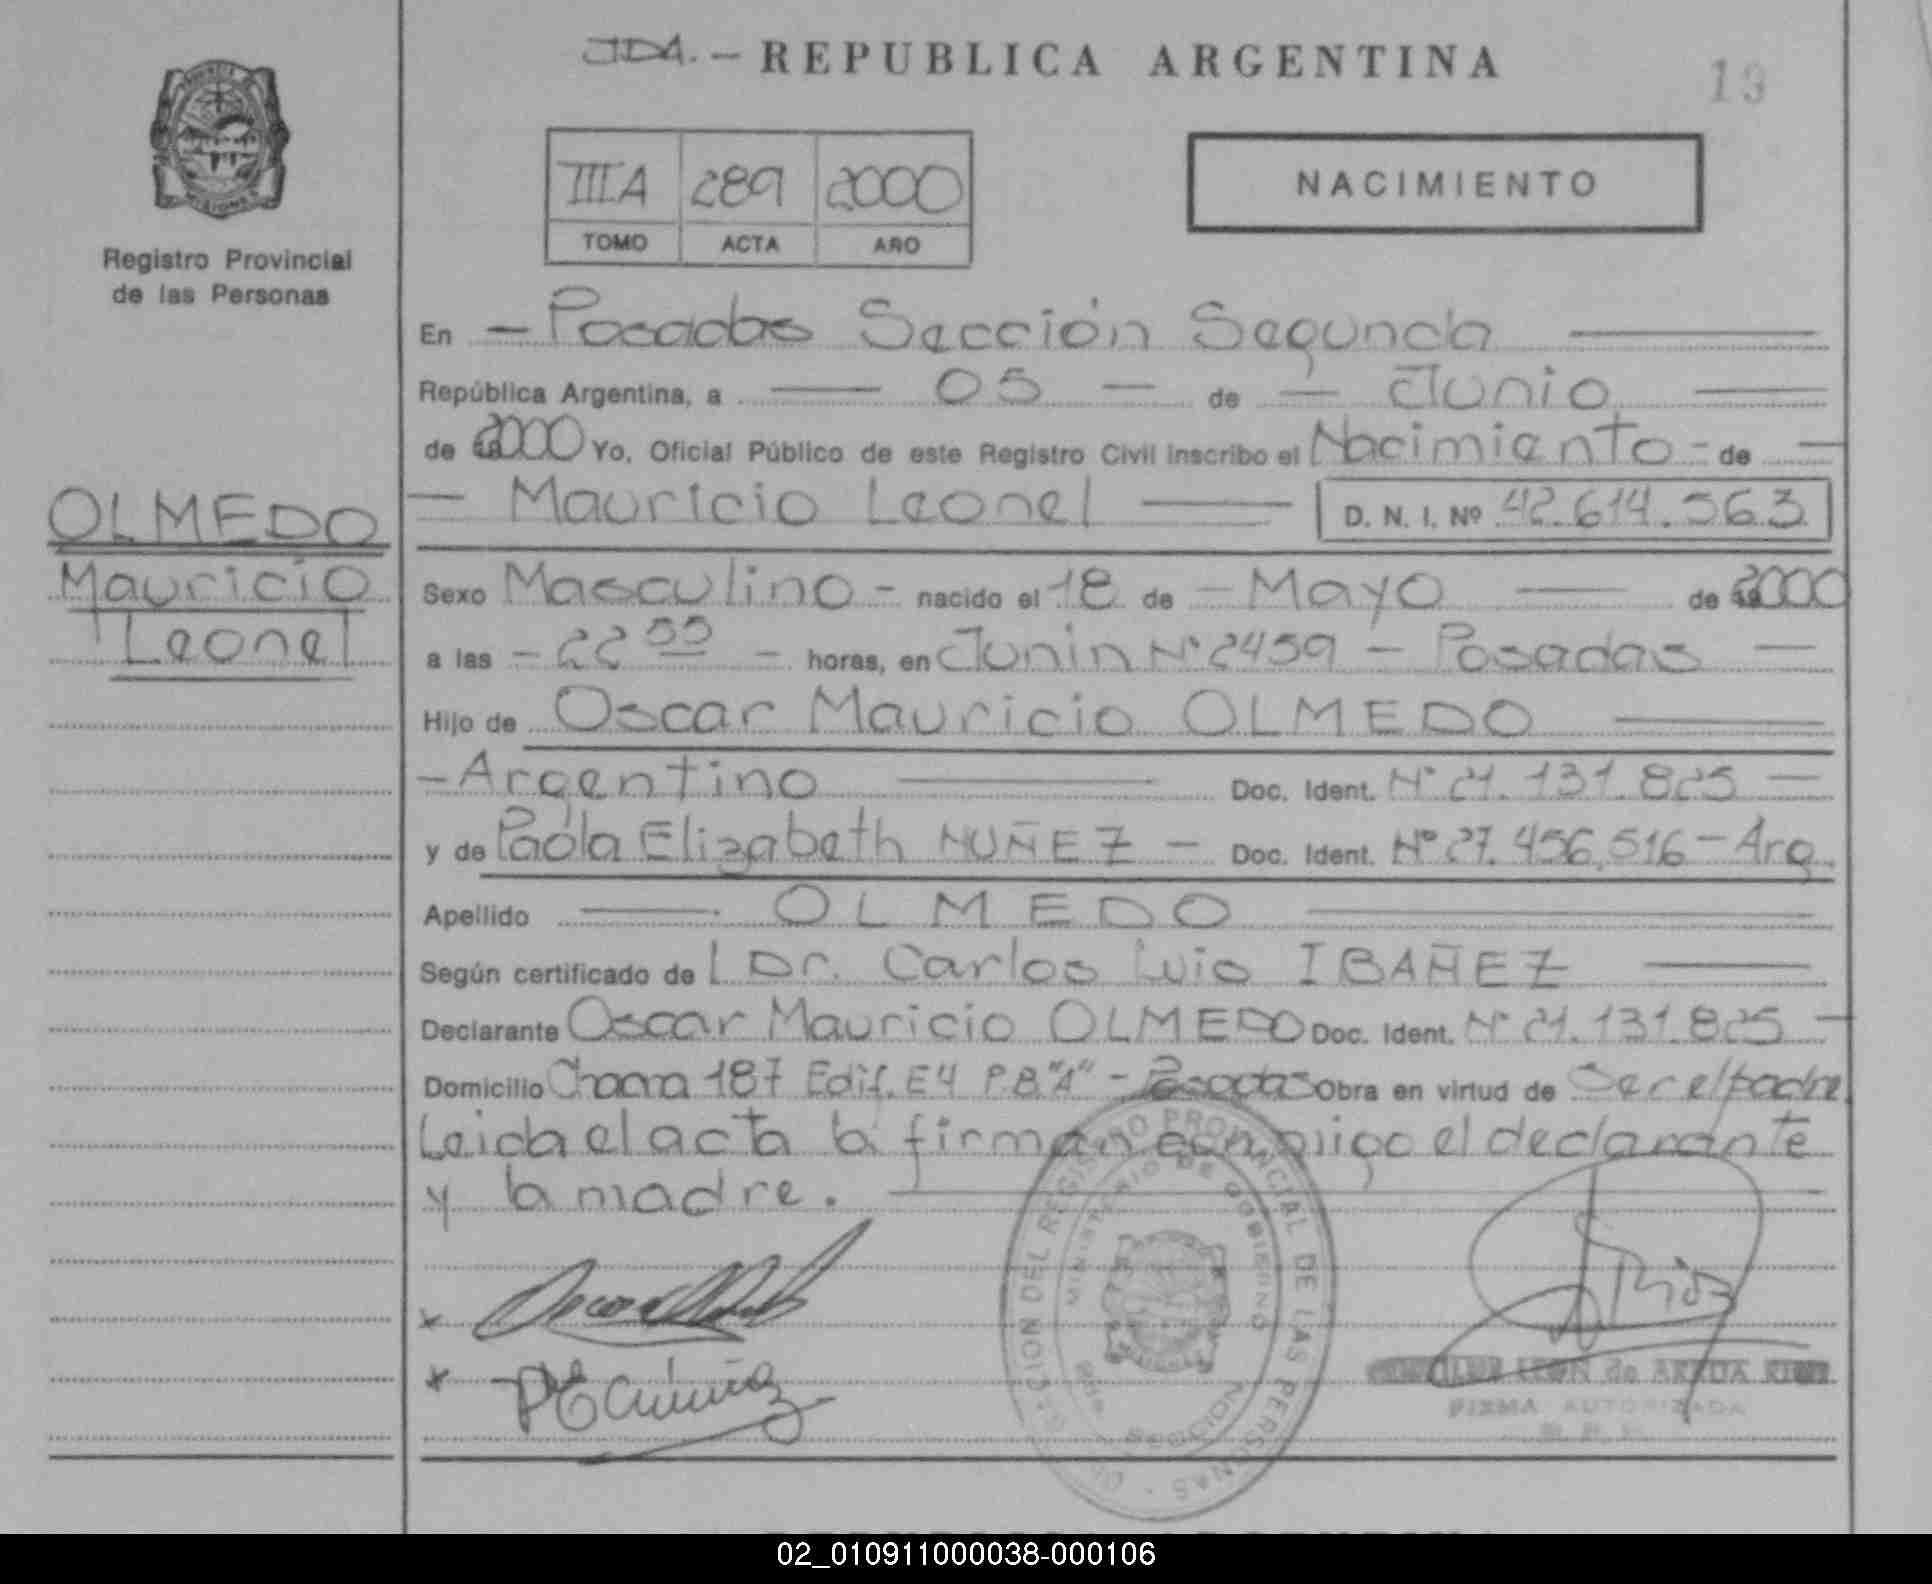 JDA. - REPUBLICA ARGENTINA
19
III A 289 2000
TOMO ACTA AÑO
NACIMIENTO
Registro Provincial
de las Personas
OLMEDO
Mauricio
Leonel
En - Posadas Sección Segunda
República Argentina, a - 05 - de - Junio
de 2000 Yo, Oficial Público de este Registro Civil inscribo el Nacimiento - de -
- Mauricio Leonel - D. N. I. Nº 42.614.563
Sexo Masculino - nacido el 18 de - Mayo - de 2000
a las - 22 55 - horas, en Junin Nº 2459 - Posadas -
Hijo de Oscar Mauricio OLMEDO
- Argentino - Doc. Ident. Nº 21.131.825 -
y de Paola Elizabeth NUÑEZ - Doc. Ident. Nº 27.456.516 - Arg.
Apellido - OLMEDO
Según certificado de l Dr. Carlos Luis IBAÑEZ
Declarante Oscar Mauricio OLMEDO Doc. Ident. Nº 21.131.825 -
Domicilio Chacra 187 Edif. E4 P.B. "A" - Posadas Obra en virtud de Ser el padre.
Leida el acta la firman conmigo el declarante
y la madre.
REGISTRO PROVINCIAL DE LAS PERSONAS
MINISTERIO DE GOBIERNO
MISIONES
LEON de
FIRMA AUTORIZADA
02_010911000038-000106